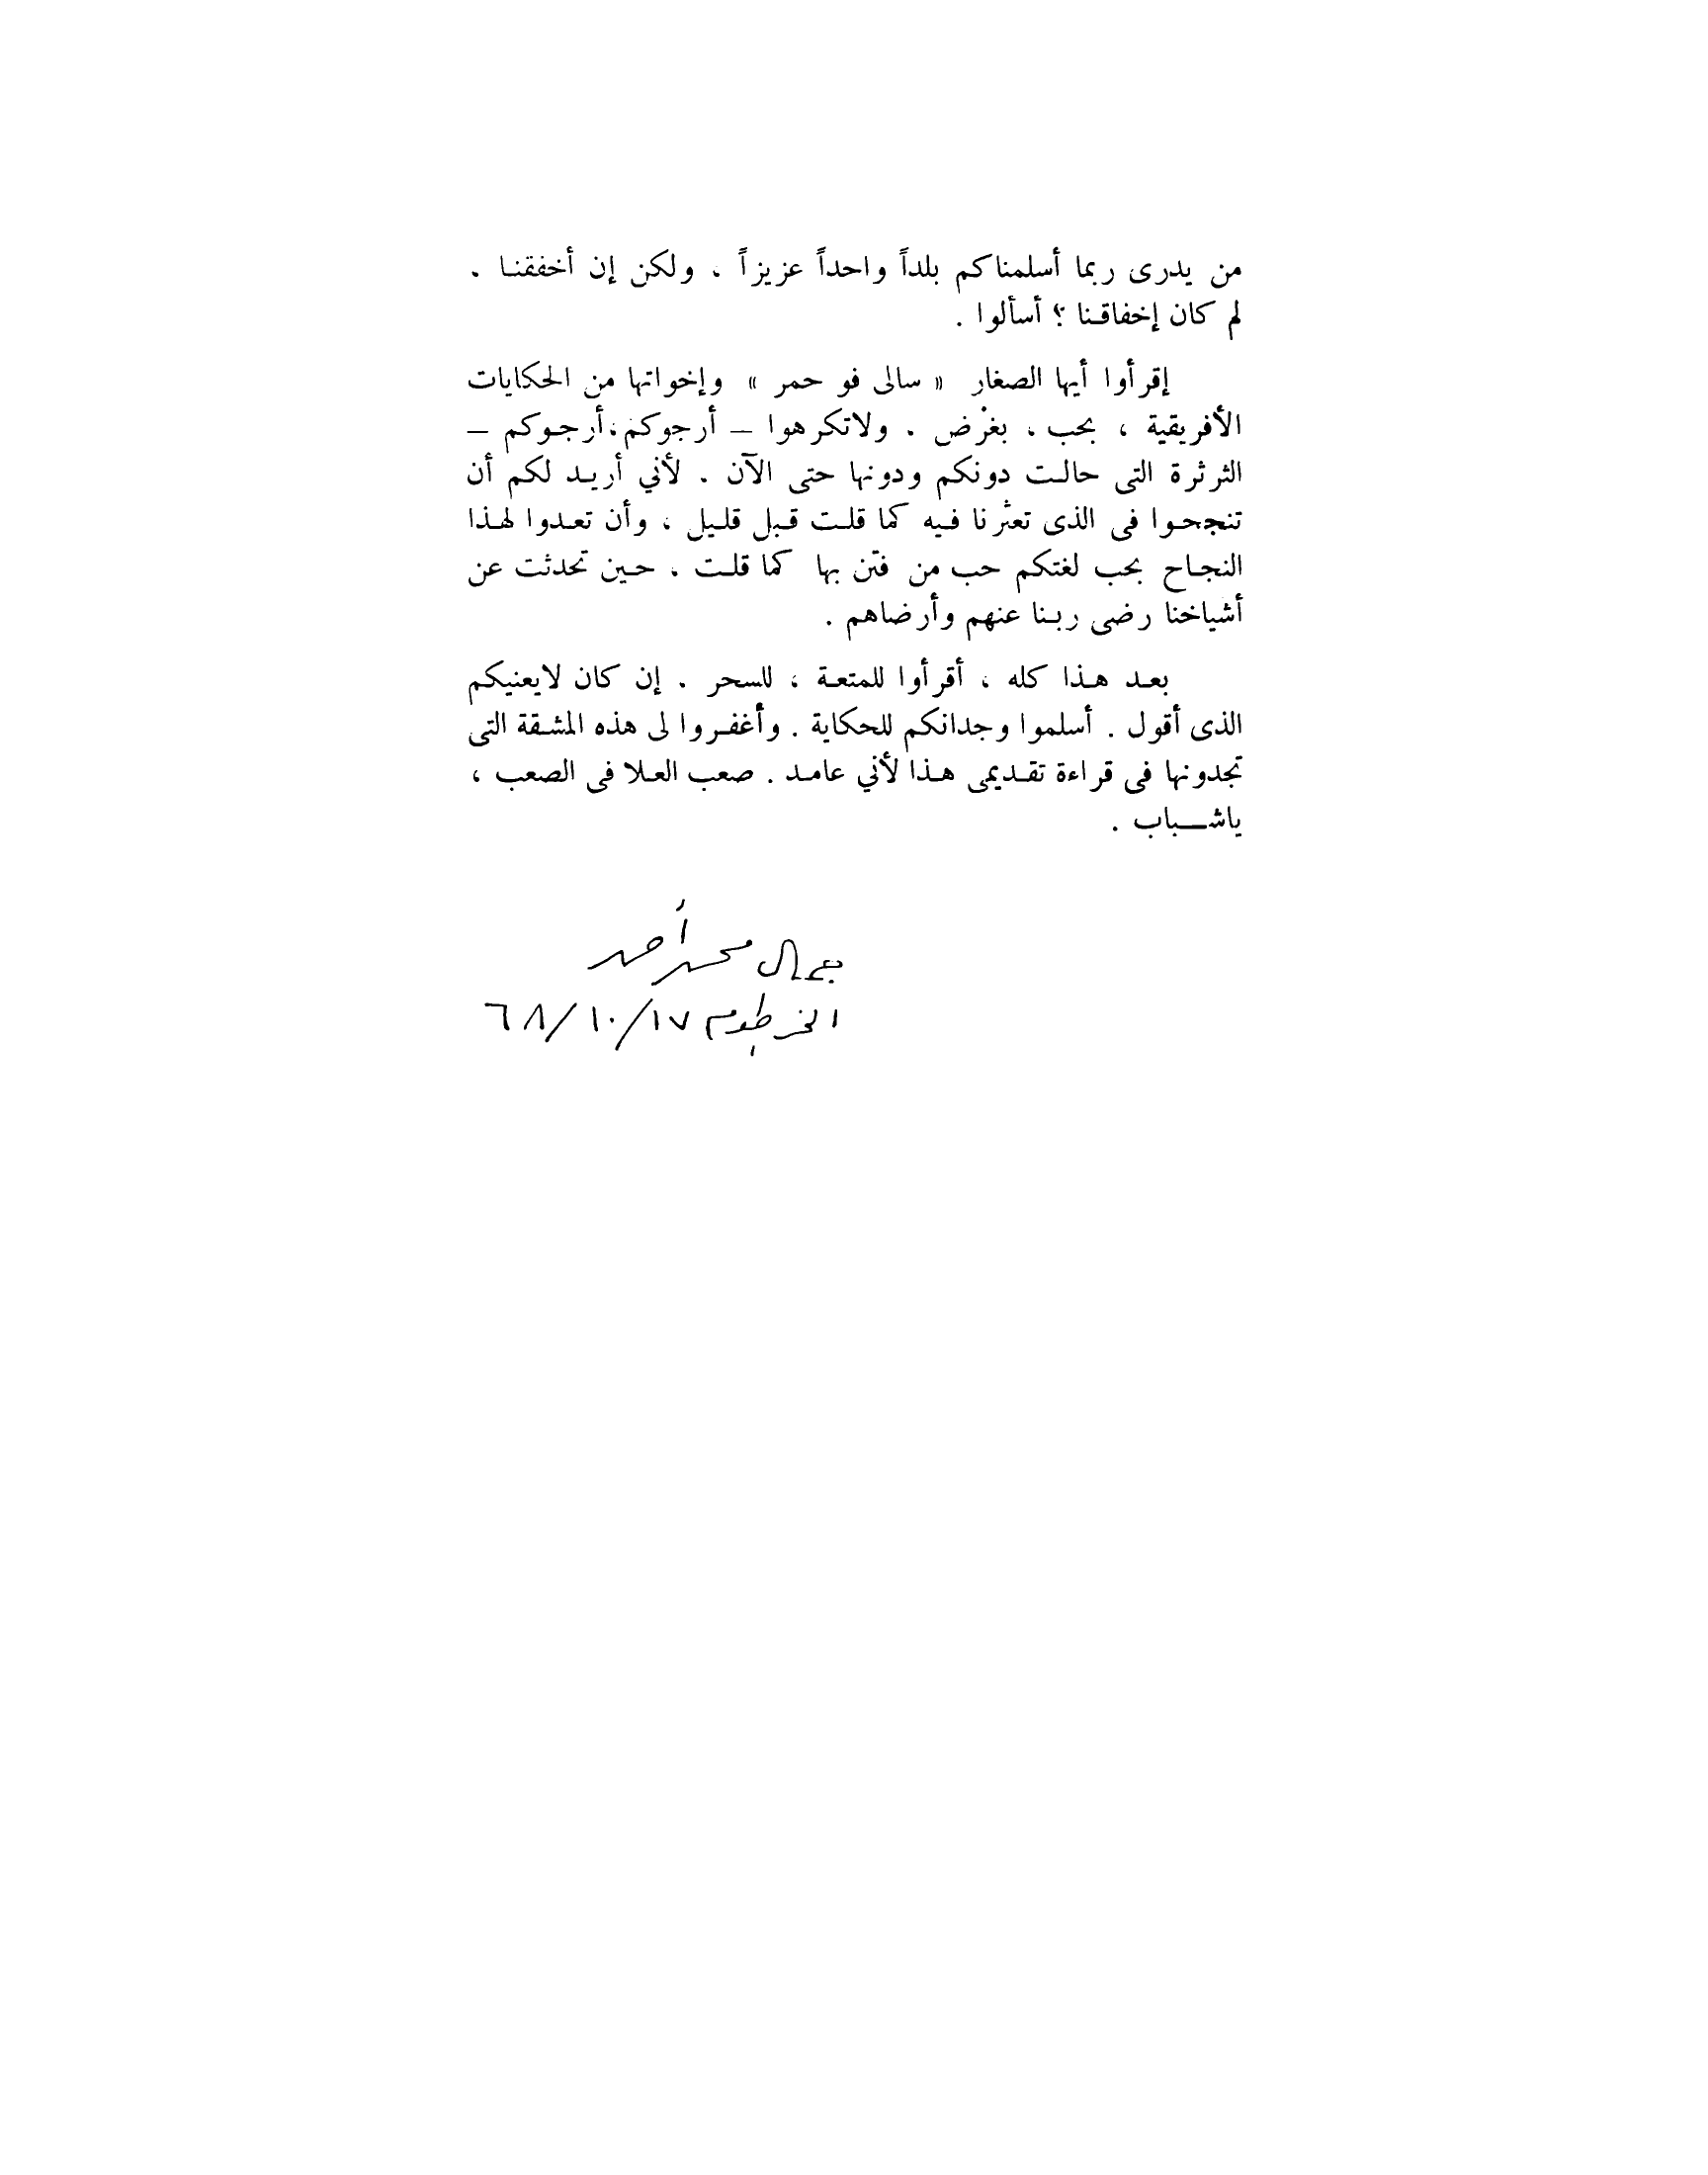 من يدرى ربما أسلمناكم بلداً واحداً عزيزاً ، ولكن إن أخفقنا .
لم كان إخفاقنا ؟ أسألوا .
إقرأوا أيها الصغار « سالى فو حمر » وإخواتها من الحكايات
الأفريقية ، بحب ، بغرض . ولاتكرهوا — أرجوكم ، أرجوكم —
الثرثرة التى حالت دونكم ودونها حتى الآن . لأني أريد لكم أن
تنجحوا فى الذى تعثرنا فيه كما قلت قبل قليل ، وأن تعدوا لهذا
النجاح بحب لغتكم حب من فتن بها كما قلت ، حين تحدثت عن
أشياخنا رضى ربنا عنهم وأرضاهم .
بعد هذا كله ، أقرأوا للمتعة ، للسحر . إن كان لايعنيكم
الذى أقول . أسلموا وجدانكم للحكاية . وأغفروا لى هذه المشقة التى
تجدونها فى قراءة تقديمى هذا لأني عامد . صعب العلا فى الصعب ،
ياشباب .
جمال محمد أحمد
الخرطوم ١٧/١٠/٦٨